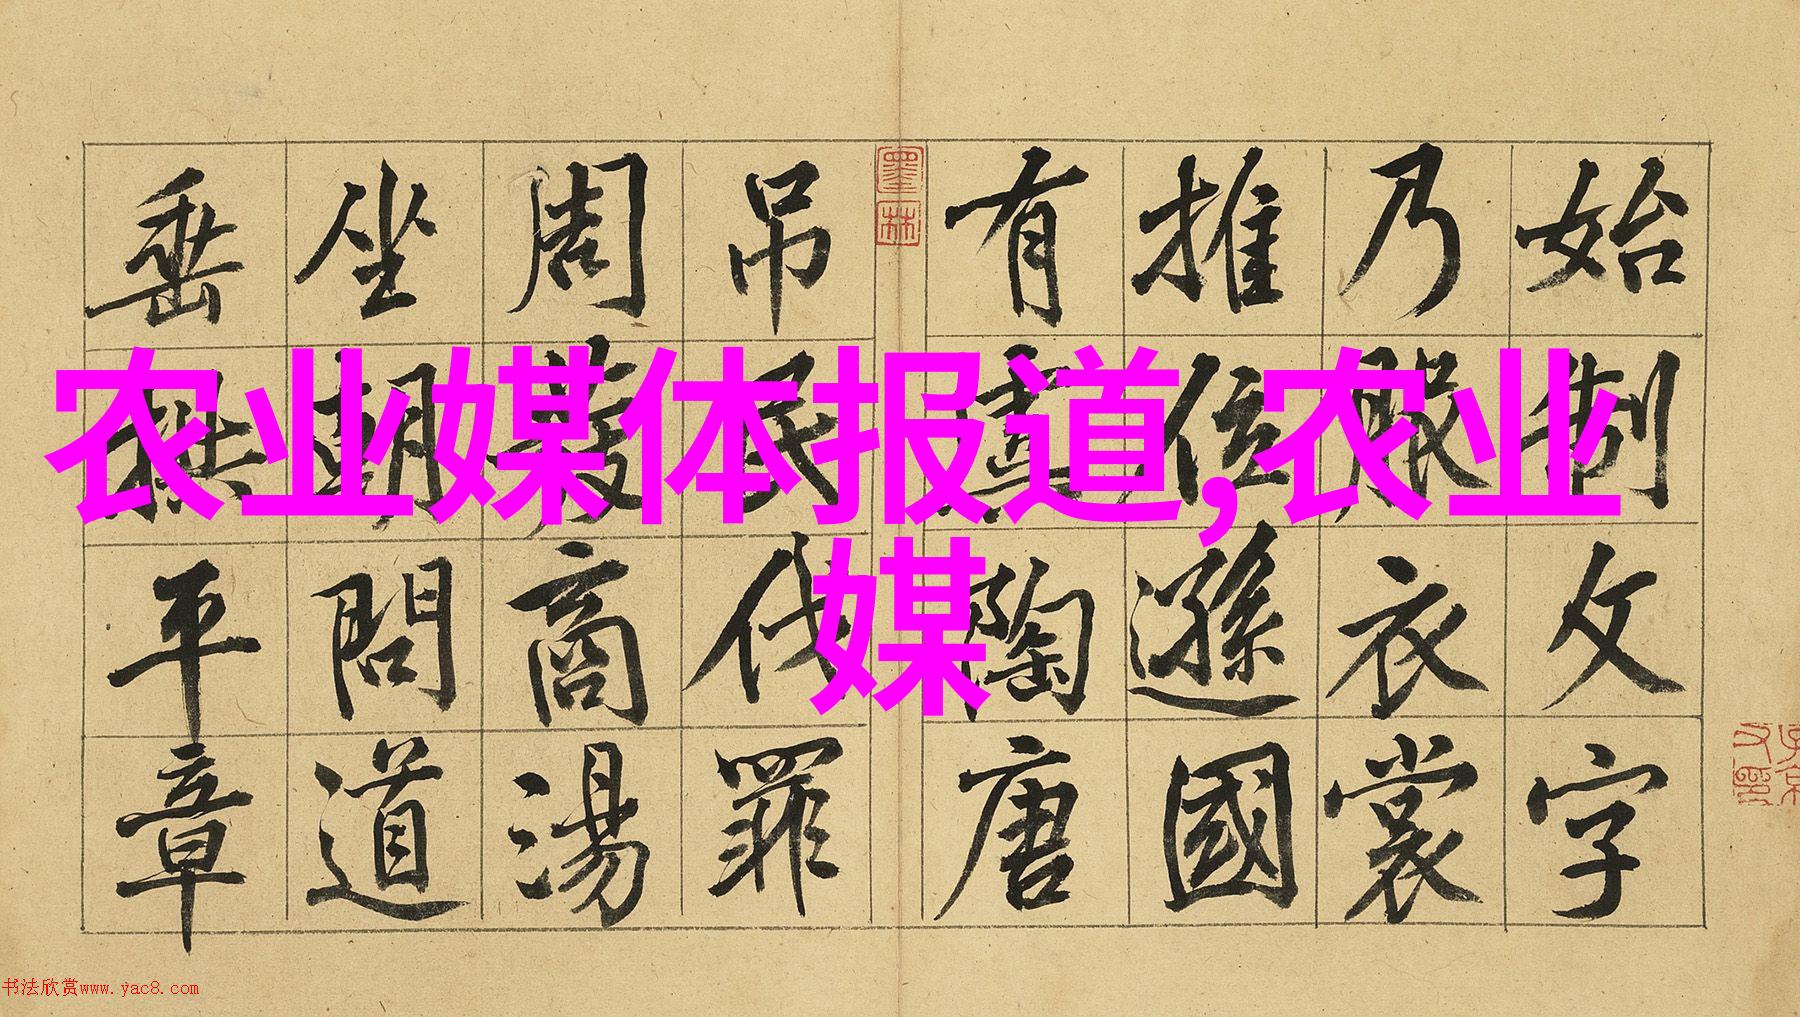 农业媒体报道,农业
媒
始制文字
乃服衣裳
推位遜國
有虞陶唐
吊民伐罪
周發商湯
坐朝問道
垂拱平章
墨林
书法欣赏www.yac8.com